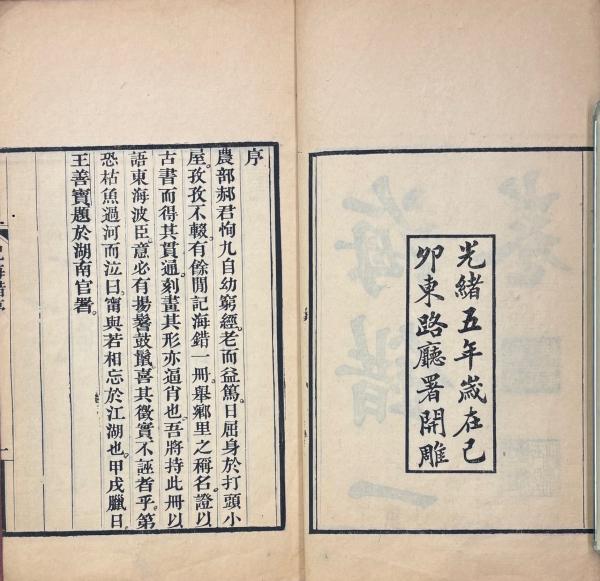 光緒五年歲在己
卯東路廳署開雕
序
農部郝君恂九自幼窮經老而益篤日屈身於打頭小
屋孜孜不輟有餘閒記海錯一冊舉鄉里之稱名證以
古書而得其貫通刻畫其形亦逼肖也吾將持此冊以
語東海波臣意必有揚鬐鼓鬣喜其徵實不誣者乎第
恐枯魚過河而泣曰甯與若相忘於江湖也甲戌臘日
王善寶題於湖南官署